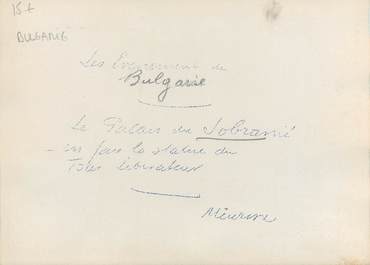 15+
BULGARIE
Les Evènements de
Bulgarie
Le Palais du Sobranié
en face la statue du
Tsar libérateur
Meurisse